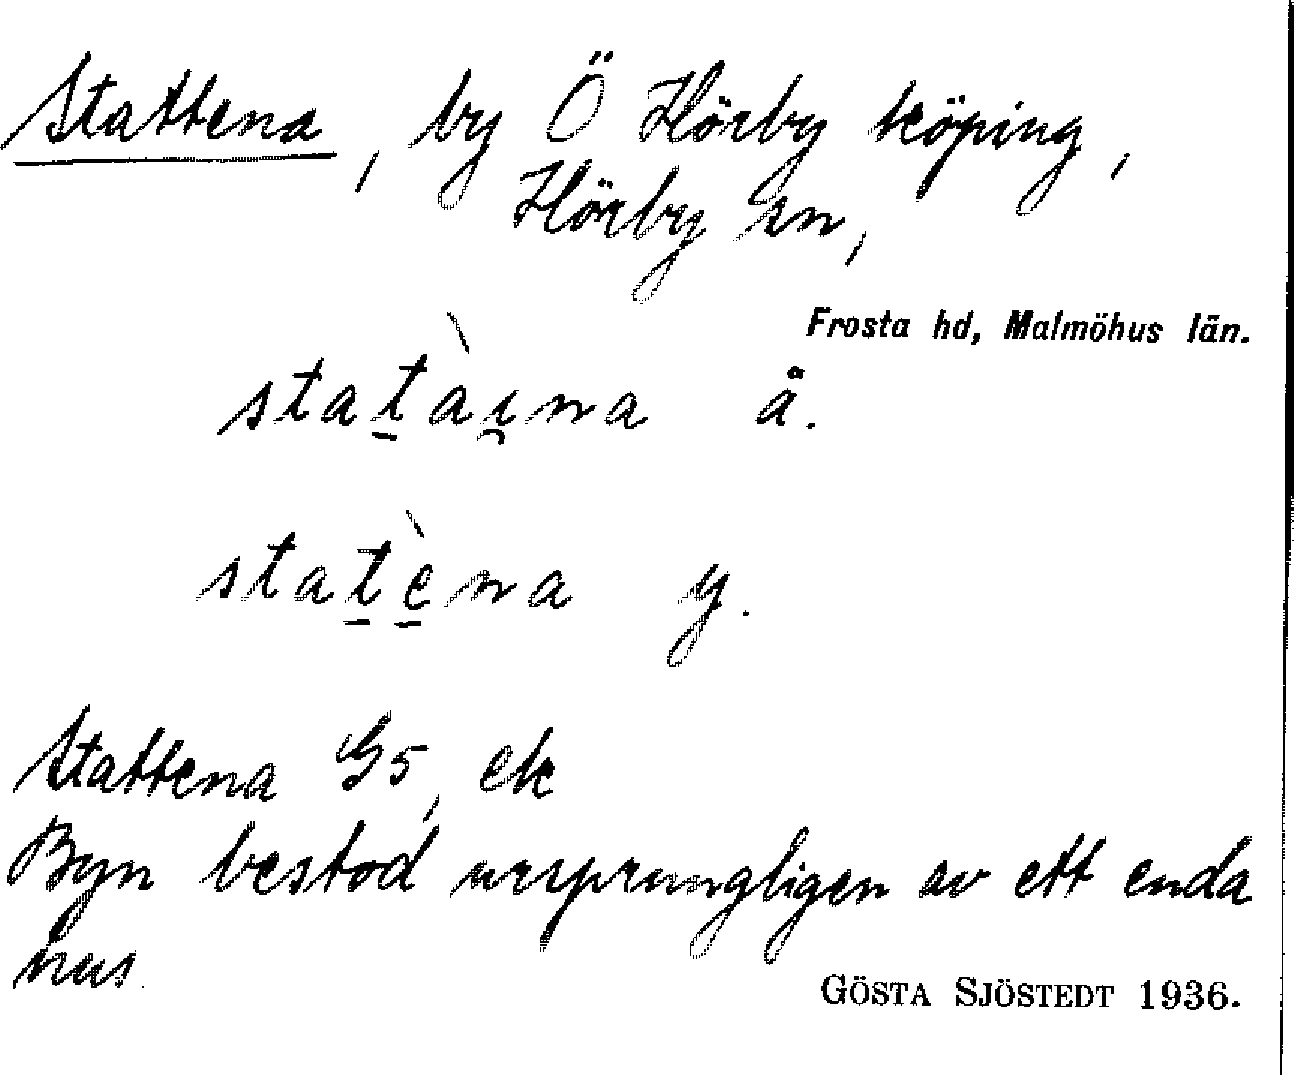 Stattena, by Ö Hörby köping,
Hörby sn,
Frosta hd, Malmöhus län.
stat̠àı̯na å.
stat̠è̠na y.
Stattena G5, ek
Byn bestod ursprungligen av ett enda
hus.
GÖSTA SJÖSTEDT 1936.